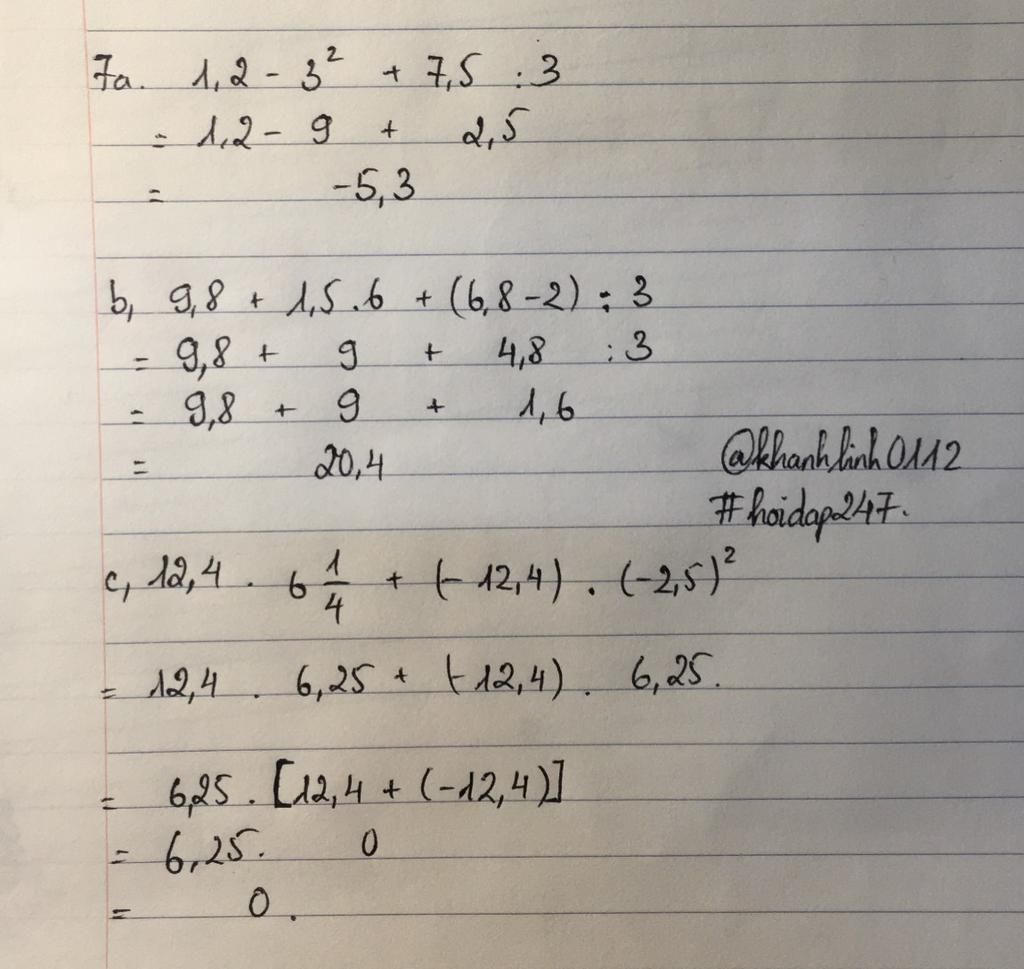 7a. 1,2 - 3² + 7,5 : 3
= 1,2 - 9 + 2,5
= -5,3
b, 9,8 + 1,5 . 6 + (6,8 - 2) : 3
= 9,8 + 9 + 4,8 : 3
= 9,8 + 9 + 1,6
= 20,4
@khanhlinh0112
#hoidap247.
c, 12,4 . 6 1/4 + (-12,4) . (-2,5)²
= 12,4 . 6,25 + (-12,4) . 6,25.
= 6,25 . [12,4 + (-12,4)]
= 6,25. 0
= 0.